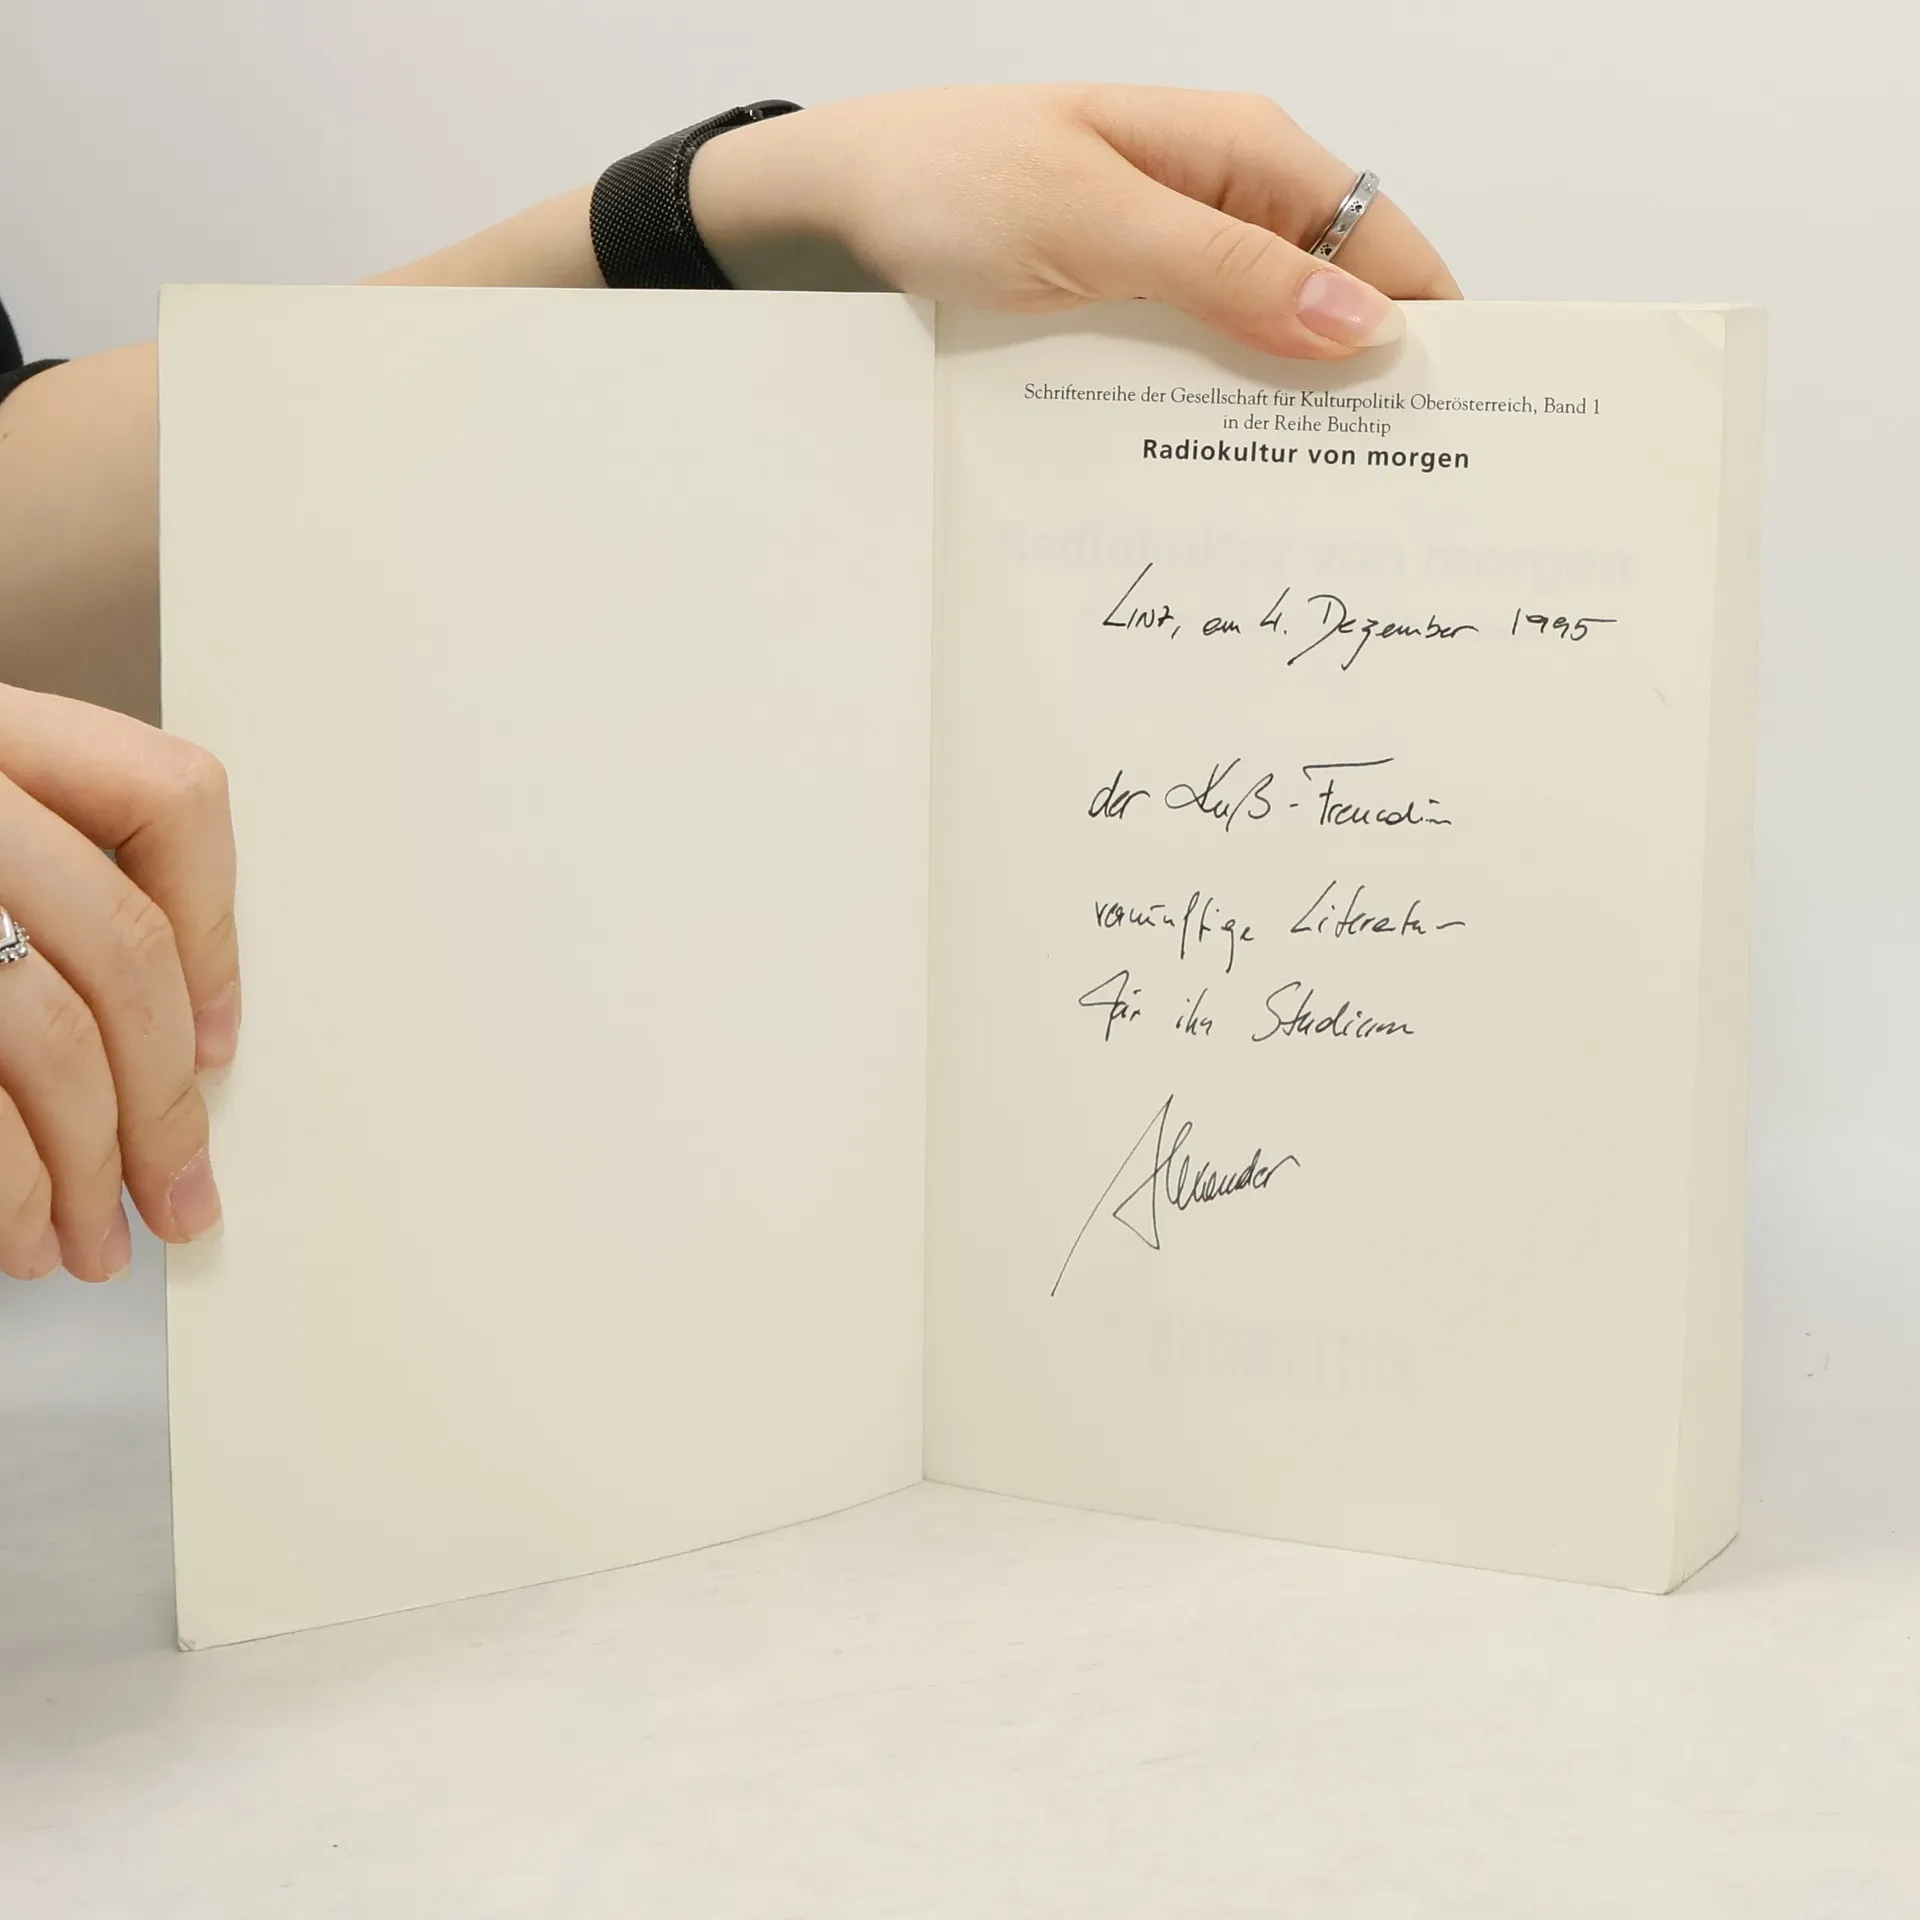 Schriftenreihe der Gesellschaft für Kulturpolitik Oberösterreich, Band 1
in der Reihe Buchtip
Radiokultur von morgen
Radiokultur von morgen
Linz, am 4. Dezember 1995
der Kuß-Freundin
vernünftige Literatur
für ihr Studium
Alexander